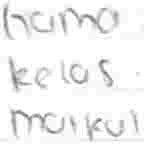 nama
kelas
matkul